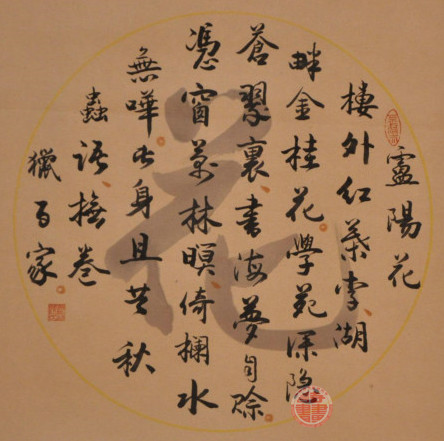 盧陽花
樓外紅葉李湖
畔金桂花學苑深隱
蒼翠裏書海夢自賒
憑窗萬林暝倚欄水
無嘩此身且共秋
蟲語撫卷
獵百家
花